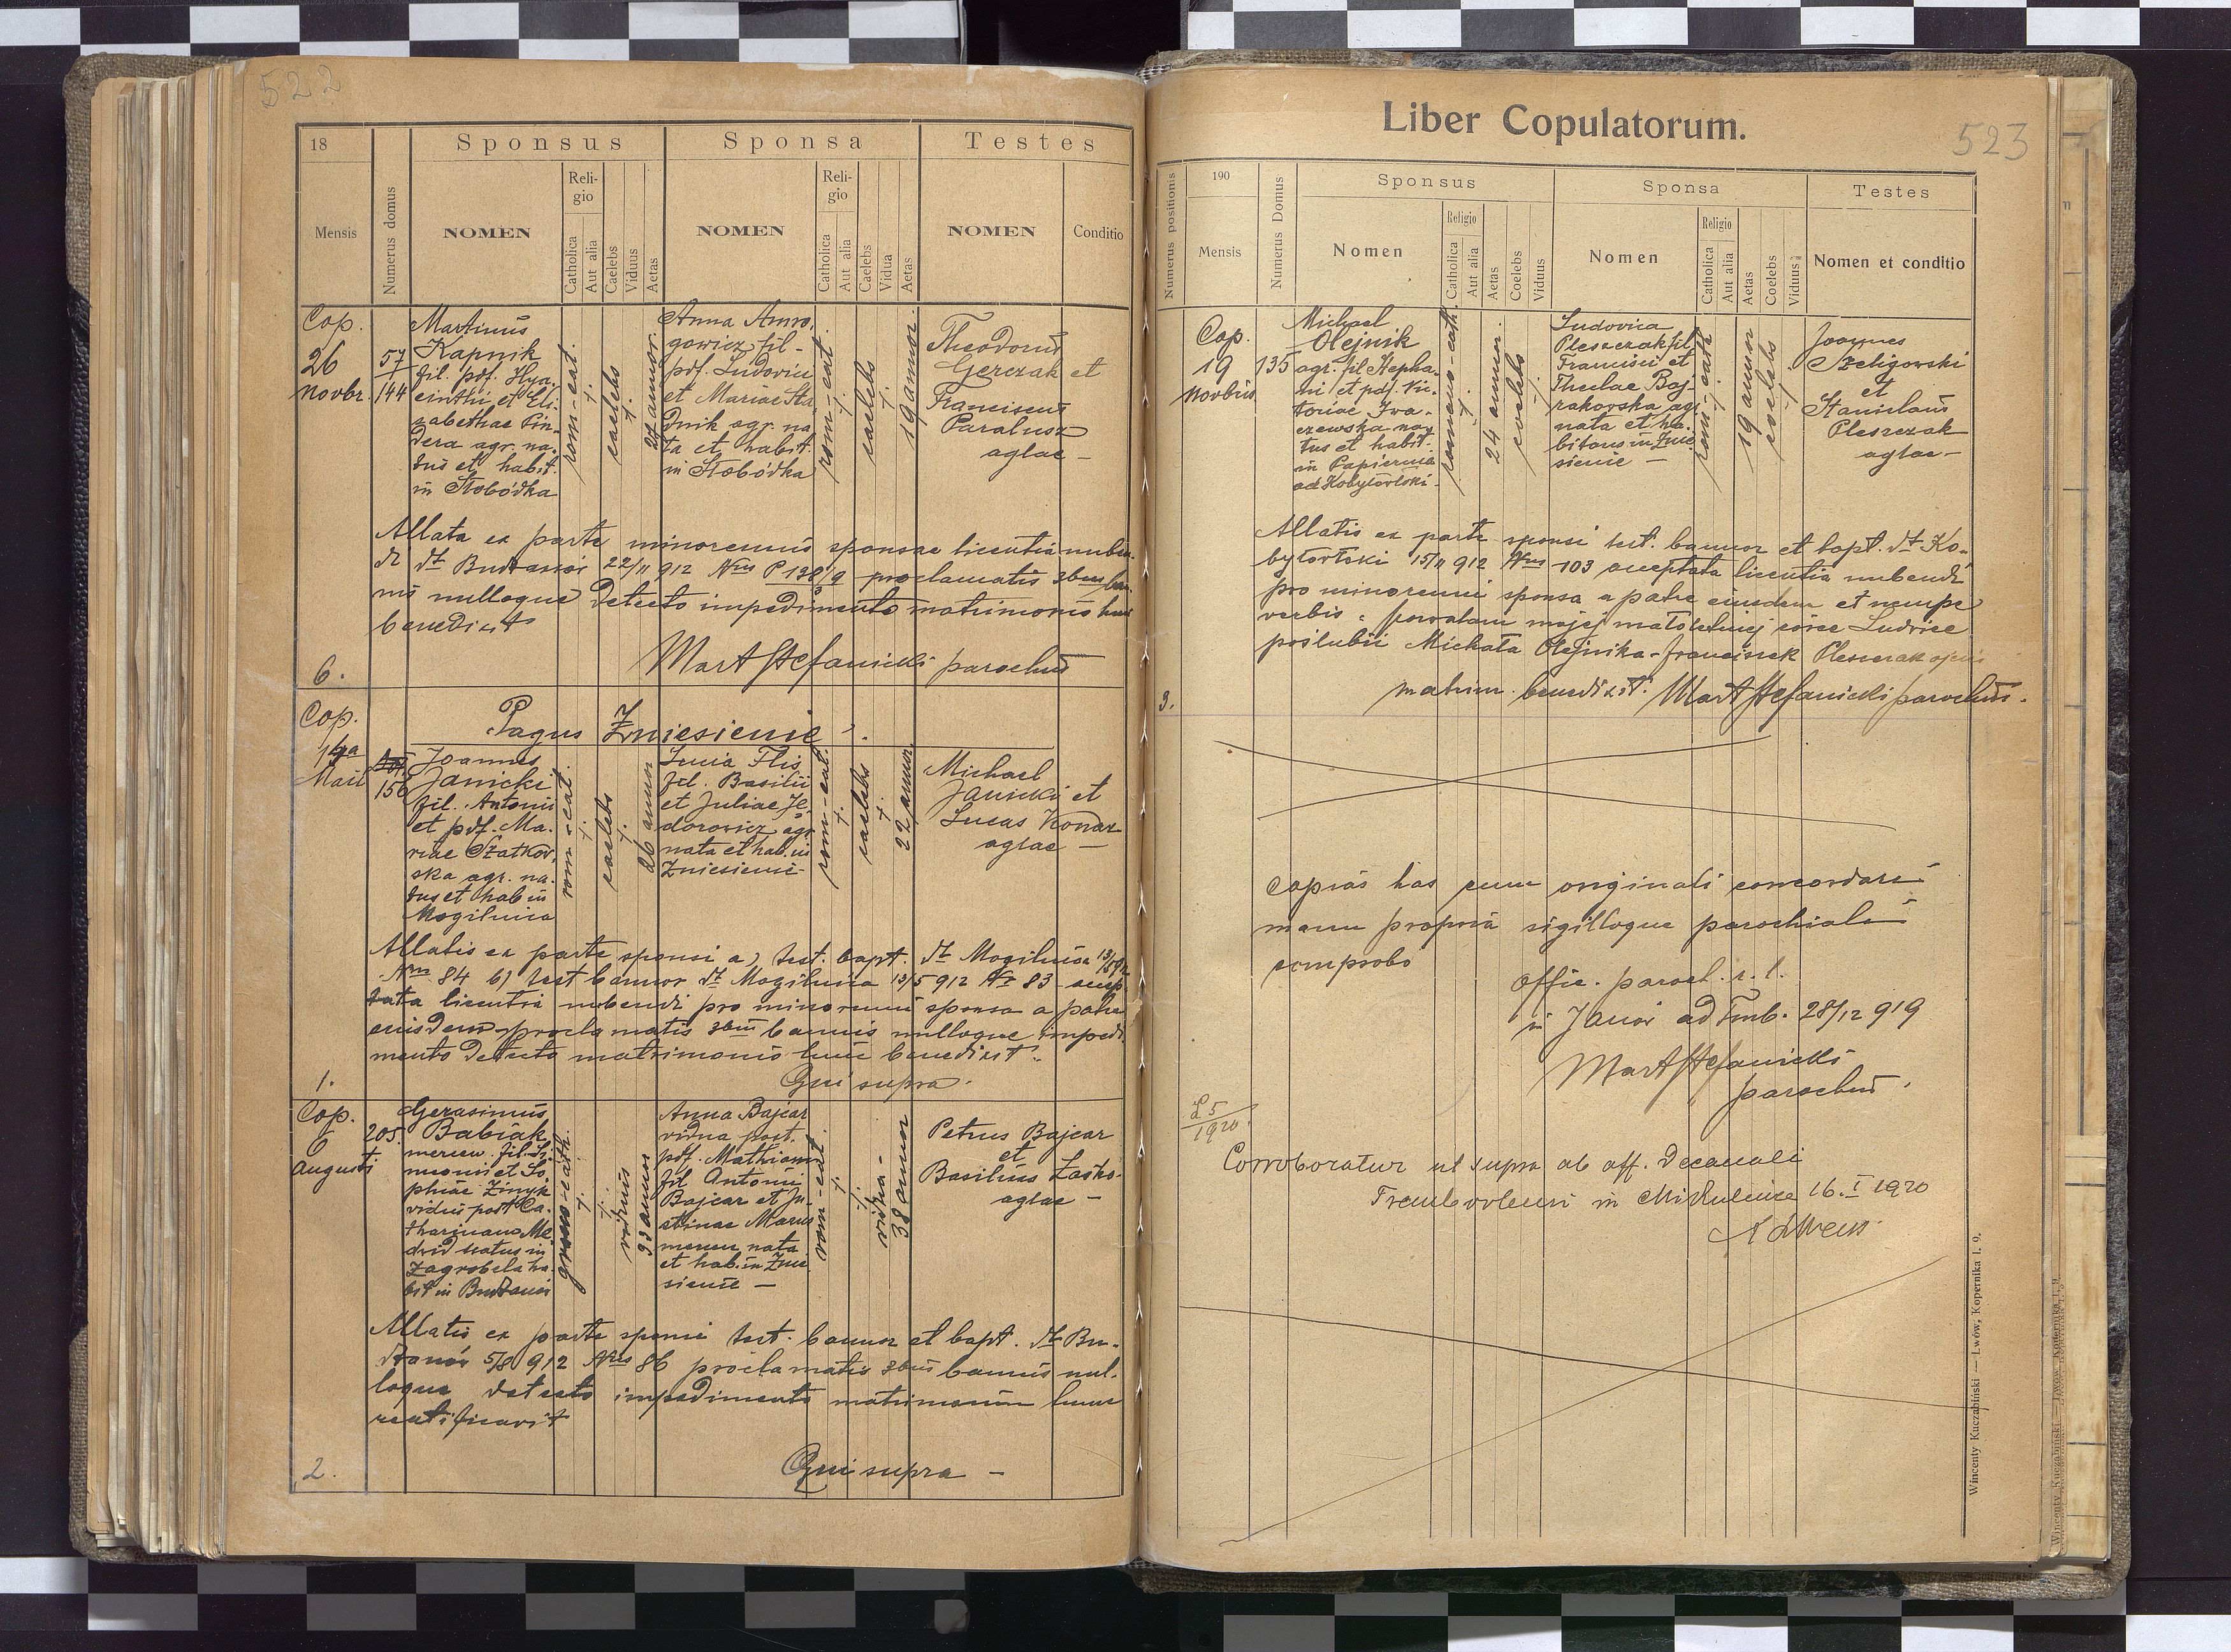 522
18
Mensis
Numerus domus
Sponsus
NOMEN
Religio
Catholica
Aut alia
Caelebs
Viduus
Aetas
Sponsa
NOMEN
Religio
Catholica
Aut alia
Caelebs
Vidua
Aetas
Testes
NOMEN
Conditio
Cop.
26
Novbr.
57
144
Martinus
Kapnik
fil. pdf. Hya-
cinthi et Eli-
zabethae Pin-
dera agr. na-
tus et habit.
in Słobódka
rom-cat.
caelebs
27 annor.
Anna Amro-
gowicz fil-
pdf. Ludovici
et Mariae Sta-
dnik agr. na
ta et habit.
in Słobódka
rom-cat
caelebs
19 annor.
Theodorus
Gerczak et
Franciscus
Paralusz
aglae -
Allata ex parte minorennis sponsae licentia nuben-
di dt Budzanów 22/11 912 Nris P 138/9 proclamatis 3bus ban-
nis nulloque detecto impedimento matrimonio huic
benedixit
6.
Mart Stefanicki parochus
Cop.
14a
Maii
Pagus Zniesienie.
156
Joannes
Janicki
fil. Antonii
et pdf. Ma-
riae Szatkow-
ska agr. na-
tus et hab in
Mogilnica
rom-cat.
caelebs
26 annor
Lucia Flis
fil. Basilii
et Juliae Je-
dorowicz agr
nata et hab. in
Zniesienie-
rom-cat.
caelebs
22 annor.
Michael
Janicki et
Lucas Konar
aglae -
Allatis ex parte sponsi a) test. bapt. dt Mogilnica 13/5 912
Nrus 84 b) test bannor dt Mogilnica 13/5 912 Nr 83 accep-
tata licentia nubendi pro minorenni sponsa a patre
eiusdem proclamatis 3bus bannis nulloque impedi-
mento detecto matrimonio huic benedixit.
1.
Qui supra.
Cop.
6
Augusti
205.
Gerasimus
Babiak
mercen. fil. Si-
meonis et So-
phiae Zinyk
viduus post Ca-
tharinam Me-
dwid natus in
Zagrobela ha-
bit in Budzanów
graeco-cath.
viduus
33 annor
Anna Bajcar
vidua post.
pdf. Mathiam
fil Antonii
Bajcar et Ju-
stinae Marus
mercen nata
et hab. in Znie
sienie -
rom-cat.
vidua -
38 annor
Petrus Bajcar
et
Basilius Laśko-
aglae -
Allatis ex parte sponsi test. bannor et bapt. dt Bu-
dzanów 5/8 912 Nris 86 proclamatis 3bus bannis nul-
loque detecto impedimento matrimonium hunc
ratificavit
2.
Qui supra -
Liber Copulatorum.
523
Numerus positionis
190
Mensis
Numerus Domus
Sponsus
Nomen
Religio
Catholica
Aut alia
Aetas
Coelebs
Viduus
Sponsa
Nomen
Religio
Catholica
Aut alia
Aetas
Coelebs
Viduus
Testes
Nomen et conditio
Cop.
19
Novbris
135
Michael
Olejnik
agr. fil Stepha-
ni et pdf. Vic-
toriae Iwa-
czewska na-
tus et habit.
in Papiernia
ad Kobyłowłoki.
romano-cath.
24 annor.
coelebs
Ludovica
Pleszczak fil.
Francisci et
Theclae Baj-
rakowska agr.
nata et ha-
bitans in Znie
sienie -
rom-cath
19 annor
coelebs
Joannes
Szeligowski
et
Stanislaus
Pleszczak
aglae -
Allatis ex parte sponsi test. bannor et bapt. dt Ko-
byłowłoki 15/11 912 Nrus 103 acceptata licentia nubendi
pro minorenni sponsa a patre eiusdem et nempe
verbis: pozwalam mojej małoletniej córce Ludwice
poślubić Michała Olejnika - Franciszek Pleszczak ojciec
3.
matrim. benedixit. Mart Stefanicki parochus.
Copias has cum originali concordare
manu propria sigilloque parochiale
comprobo
Offic. paroch. r. l.
in Janów ad Tremb. 28/12 919
Mart Stefanicki
parochus.
L 5
1920.
Corroboratur ut supra ab off. Decanali
Trembovlensi in Mikulince 16. I 1920
Wincenty Kuczabiński — Lwów, Kopernika l. 9.
Wincenty Kuczabiński — Lwów, Kopernika l. 9.